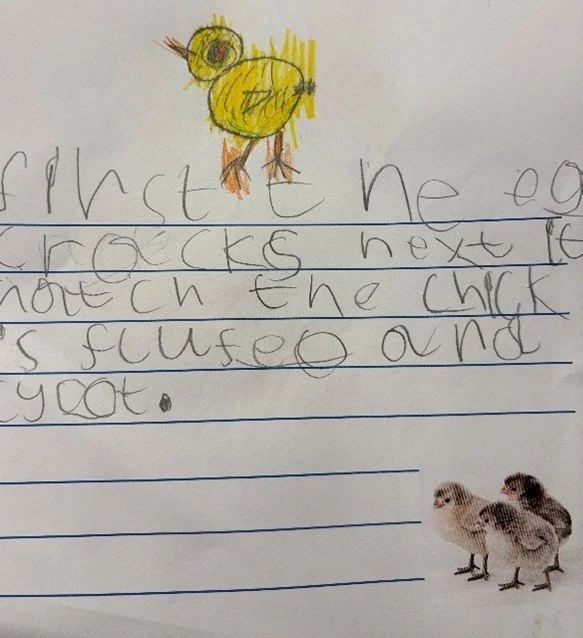 first the eg
cracks next it
hatch the chick
s flufee and
cyoot.